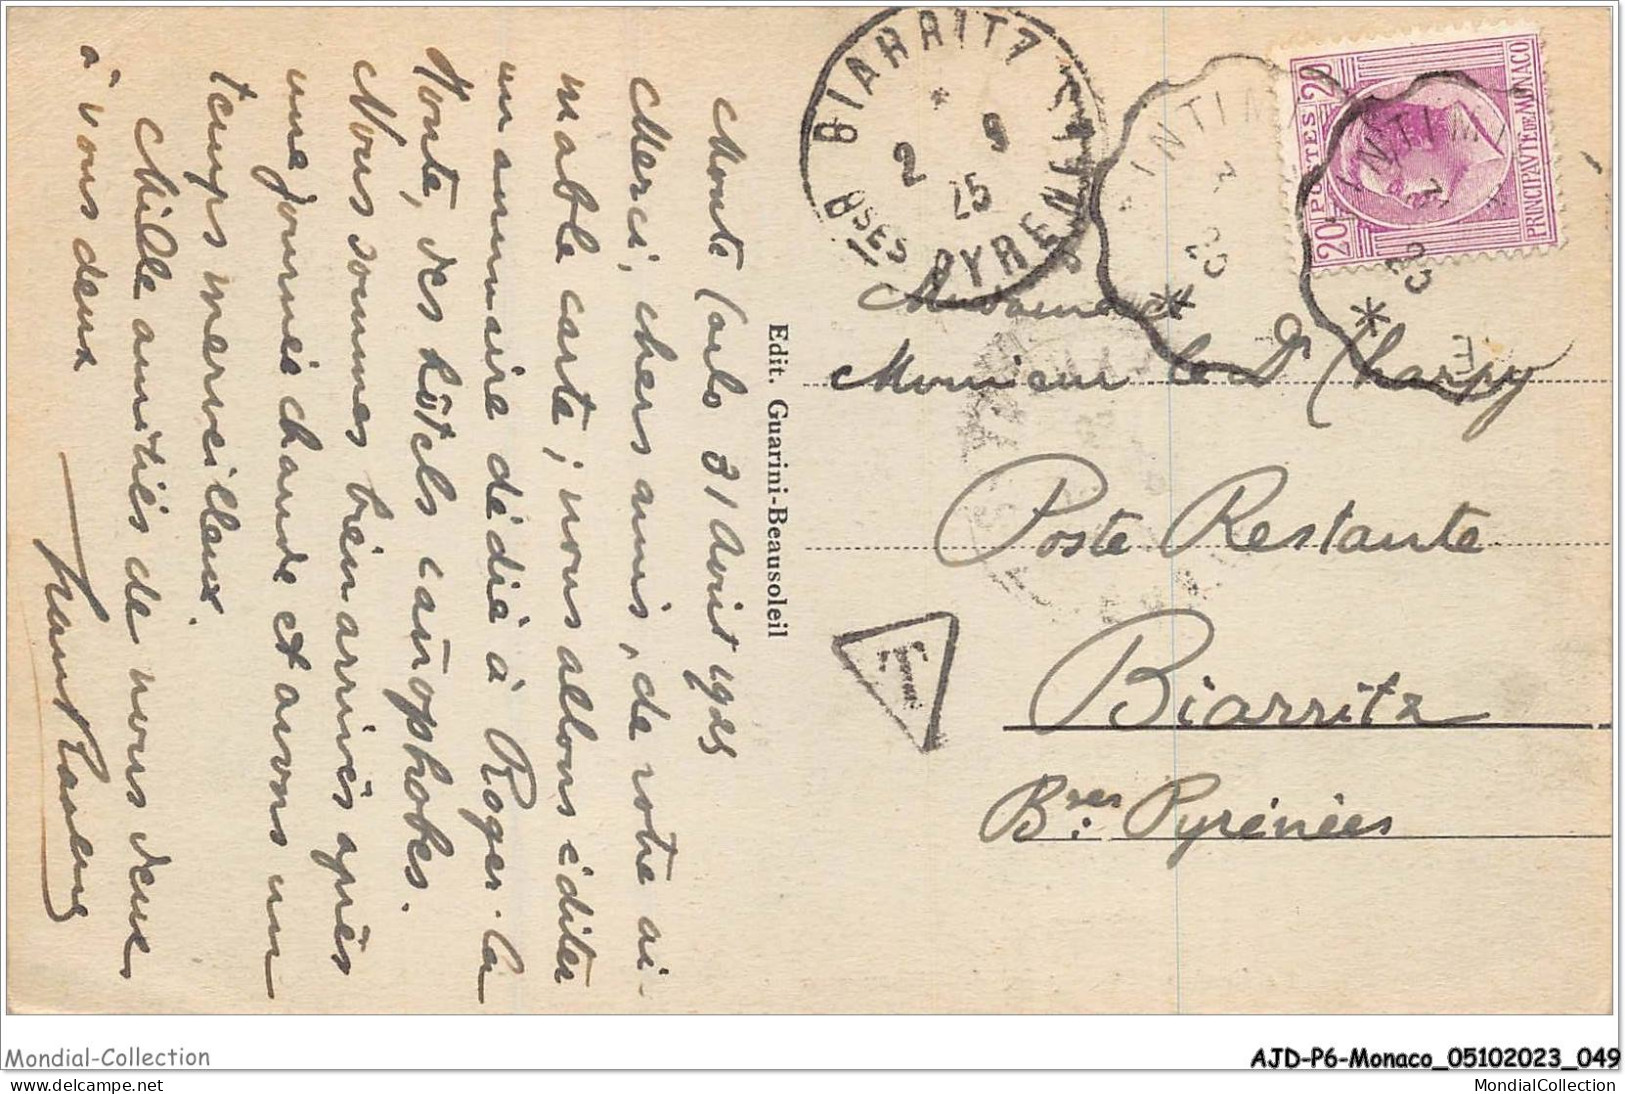 Monte Carlo 31 Avril 1925
Merci, chers amis, de votre ai-
mable carte; nous allons éditer
un annuaire dédié à Roger-la
Honte, des hôtels canophobes.
Nous sommes bien arrivés après
une journée chaude et avons un
temps merveilleux.
Mille amitiés de nous deux
à vous deux
Edit. Guarini-Beausoleil
BIARRITZ
* 2 9
25
BSES PYRENEES
POSTES
20 20
PRINCIPAUTÉ DE MONACO
Madame &
Monsieur le Dr Charpy
Poste Restante
Biarritz
Bses Pyrénées
T
Mondial-Collection
AJD-P6-Monaco_05102023_049
MondialCollection